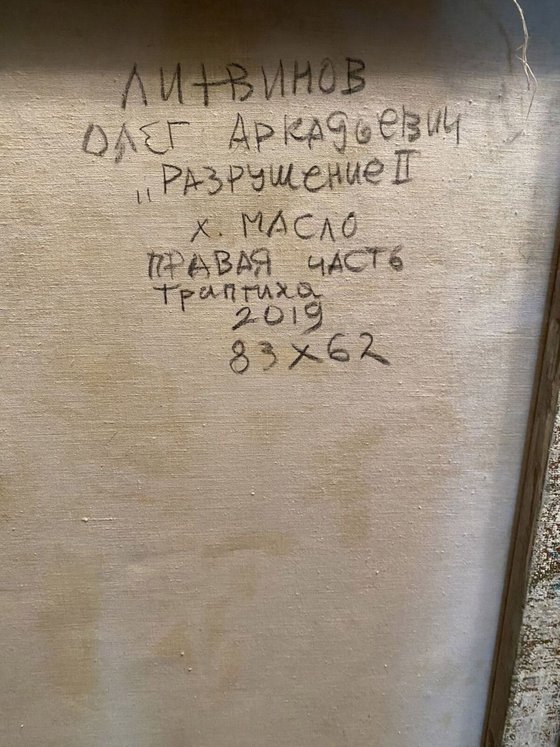 ЛИТВИНОВ
ОЛЕГ АРКАДЬЕВИЧ
„РАЗРУШЕНИЕ II
Х. МАСЛО
ПРАВАЯ ЧАСТЬ
Триптиха
2019
83х62